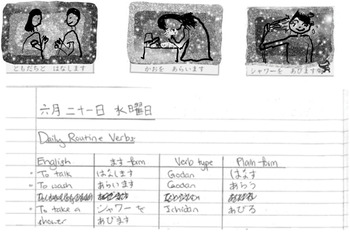 ともだちと はなします
かおを あらいます
シャワーを あびます
六月二十一日 水曜日
Daily Routine Verbs
English ます form Verb type Plain form
To talk はなします Godan はなす
To wash あらいます Godan あらう
To take a shower シャワーを あびます Ichidan あびる